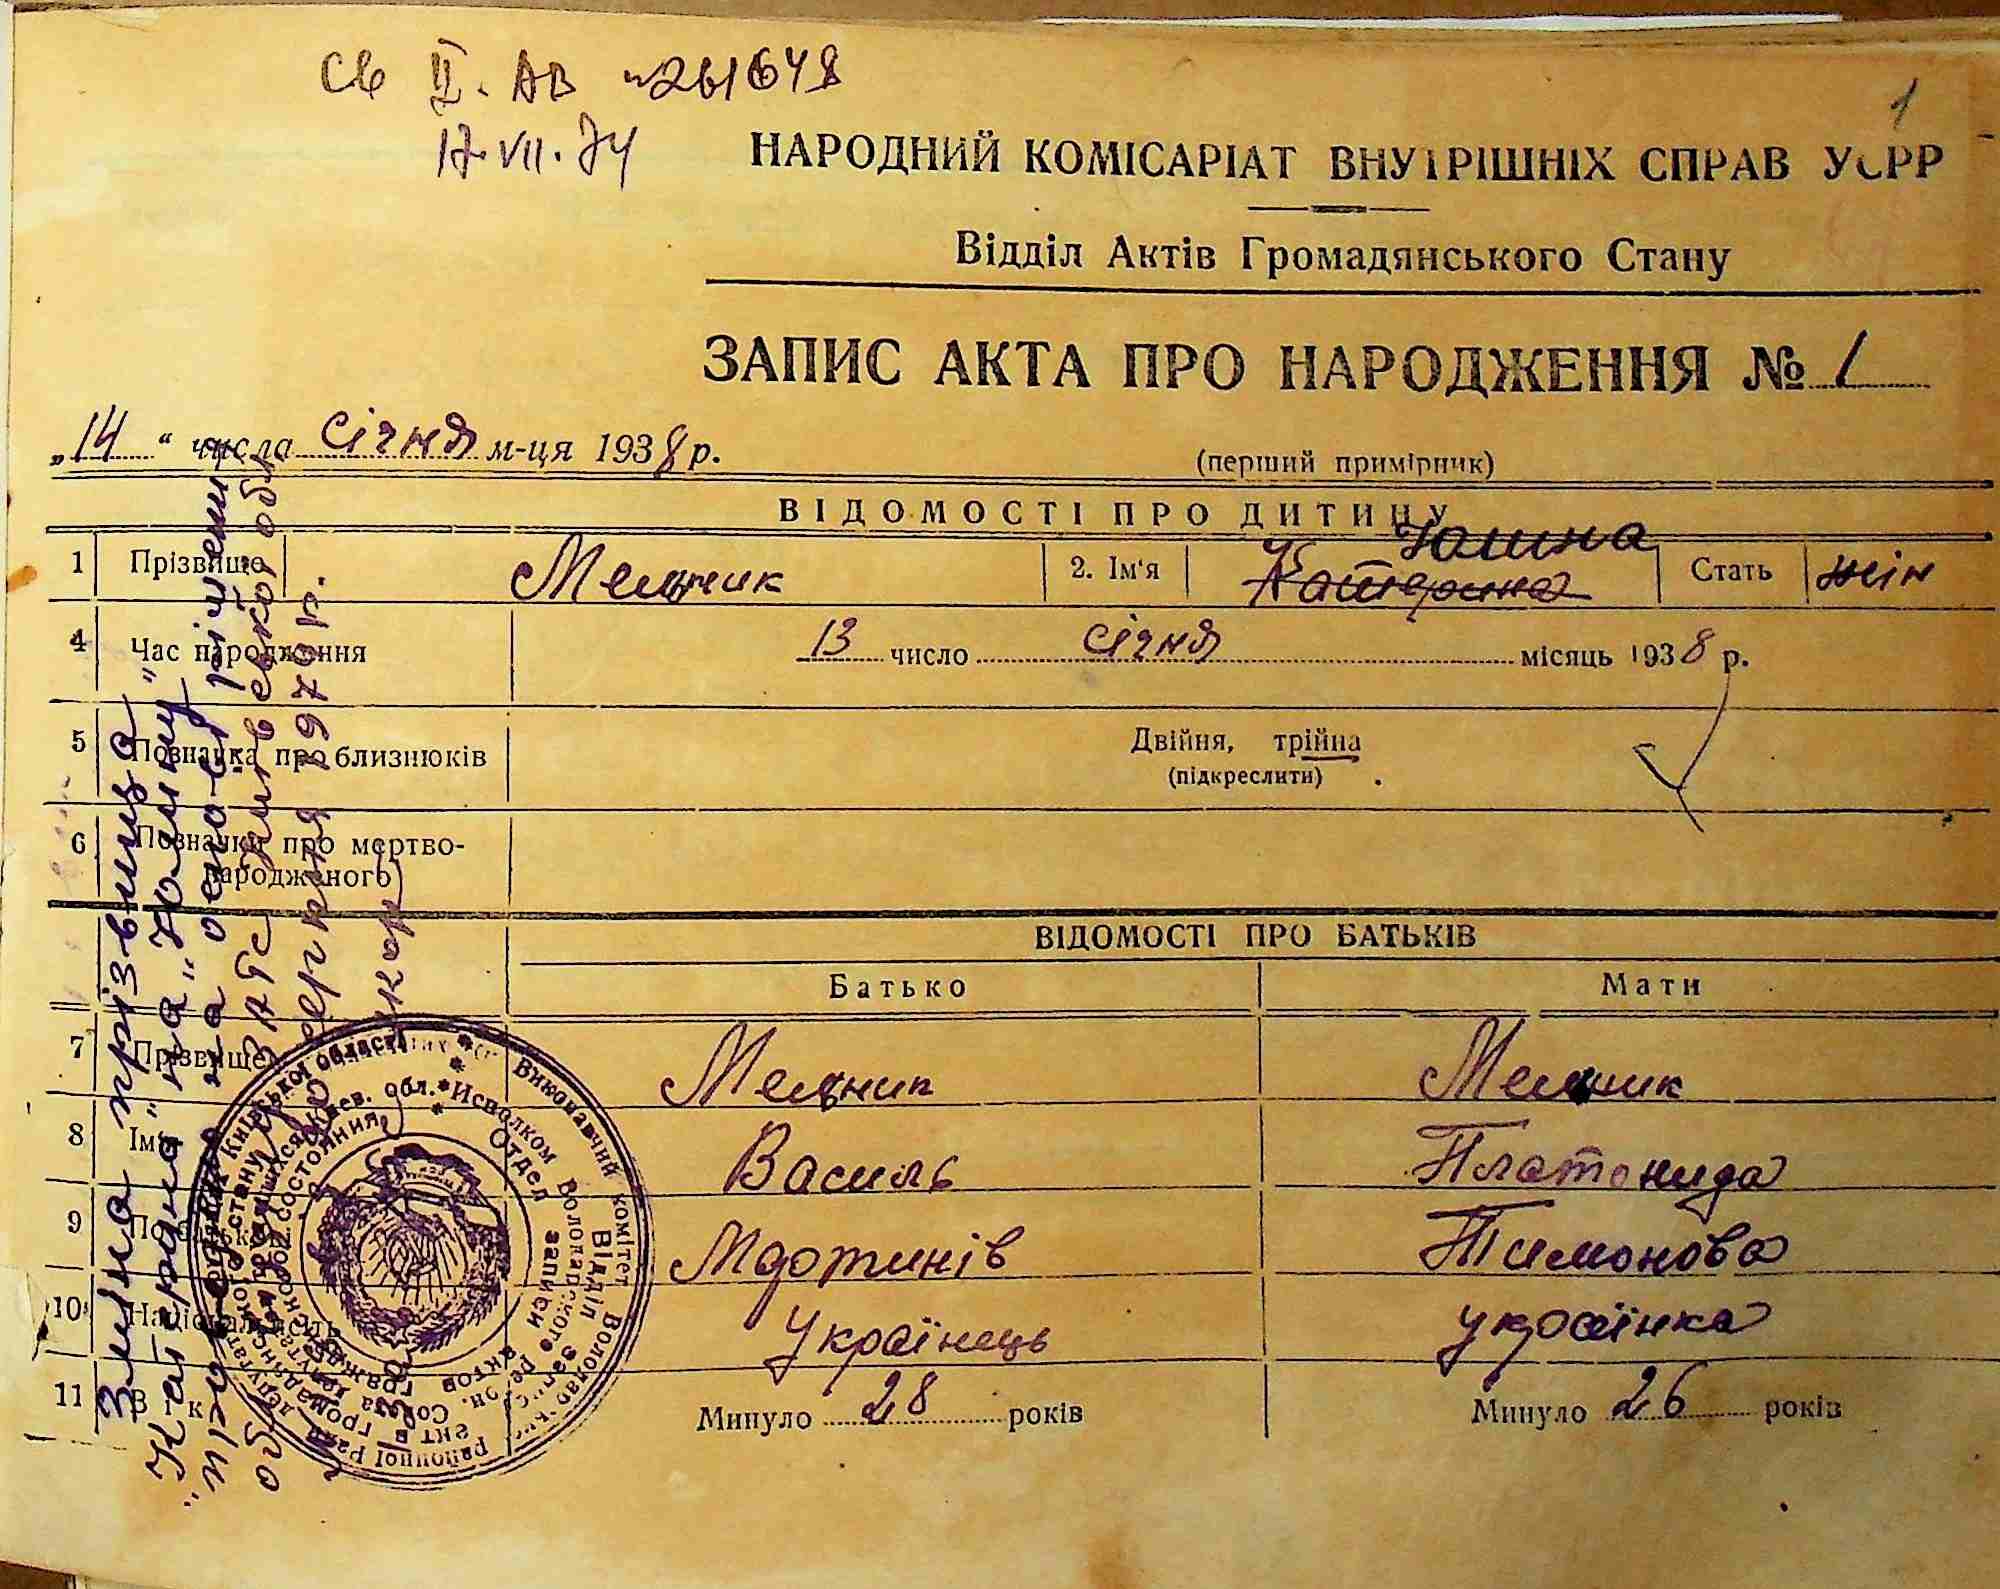 Св II. АВ №261648
17.VII.74
1
НАРОДНИЙ КОМІСАРІАТ ВНУТРІШНІХ СПРАВ УСРР
Відділ Актів Громадянського Стану
ЗАПИС АКТА ПРО НАРОДЖЕННЯ № 1
„14“ числа січня м-ця 1938 р.
(перший примірник)
ВІДОМОСТІ ПРО ДИТИНУ
Юлина
1 Прізвище Мельник 2. Ім'я Катерина Стать жін
4 Час народження 13 число січня місяць 1938 р.
5 Позначка про близнюків Двійня, трійна
(підкреслити)
6 Позначки про мертво-
народженого
ВІДОМОСТІ ПРО БАТЬКІВ
Батько Мати
7 Прізвище Мельник Мельник
8 Ім'я Василь Платонида
9 По батькові Мартинів Тимонова
10 Національність Українець українка
11 Вік Минуло 28 років Минуло 26 років
Зміна прізвища
"Катерина" на "Юлину"
на основі рішення
ЗАГС Київської обл
серпня 1970 р.
Виконавчий комітет Володарської районної Ради депутатів Київської області
Відділ запису актів громадянського стану
Исполком Володарского
Отдел записи актов гражданского состояния